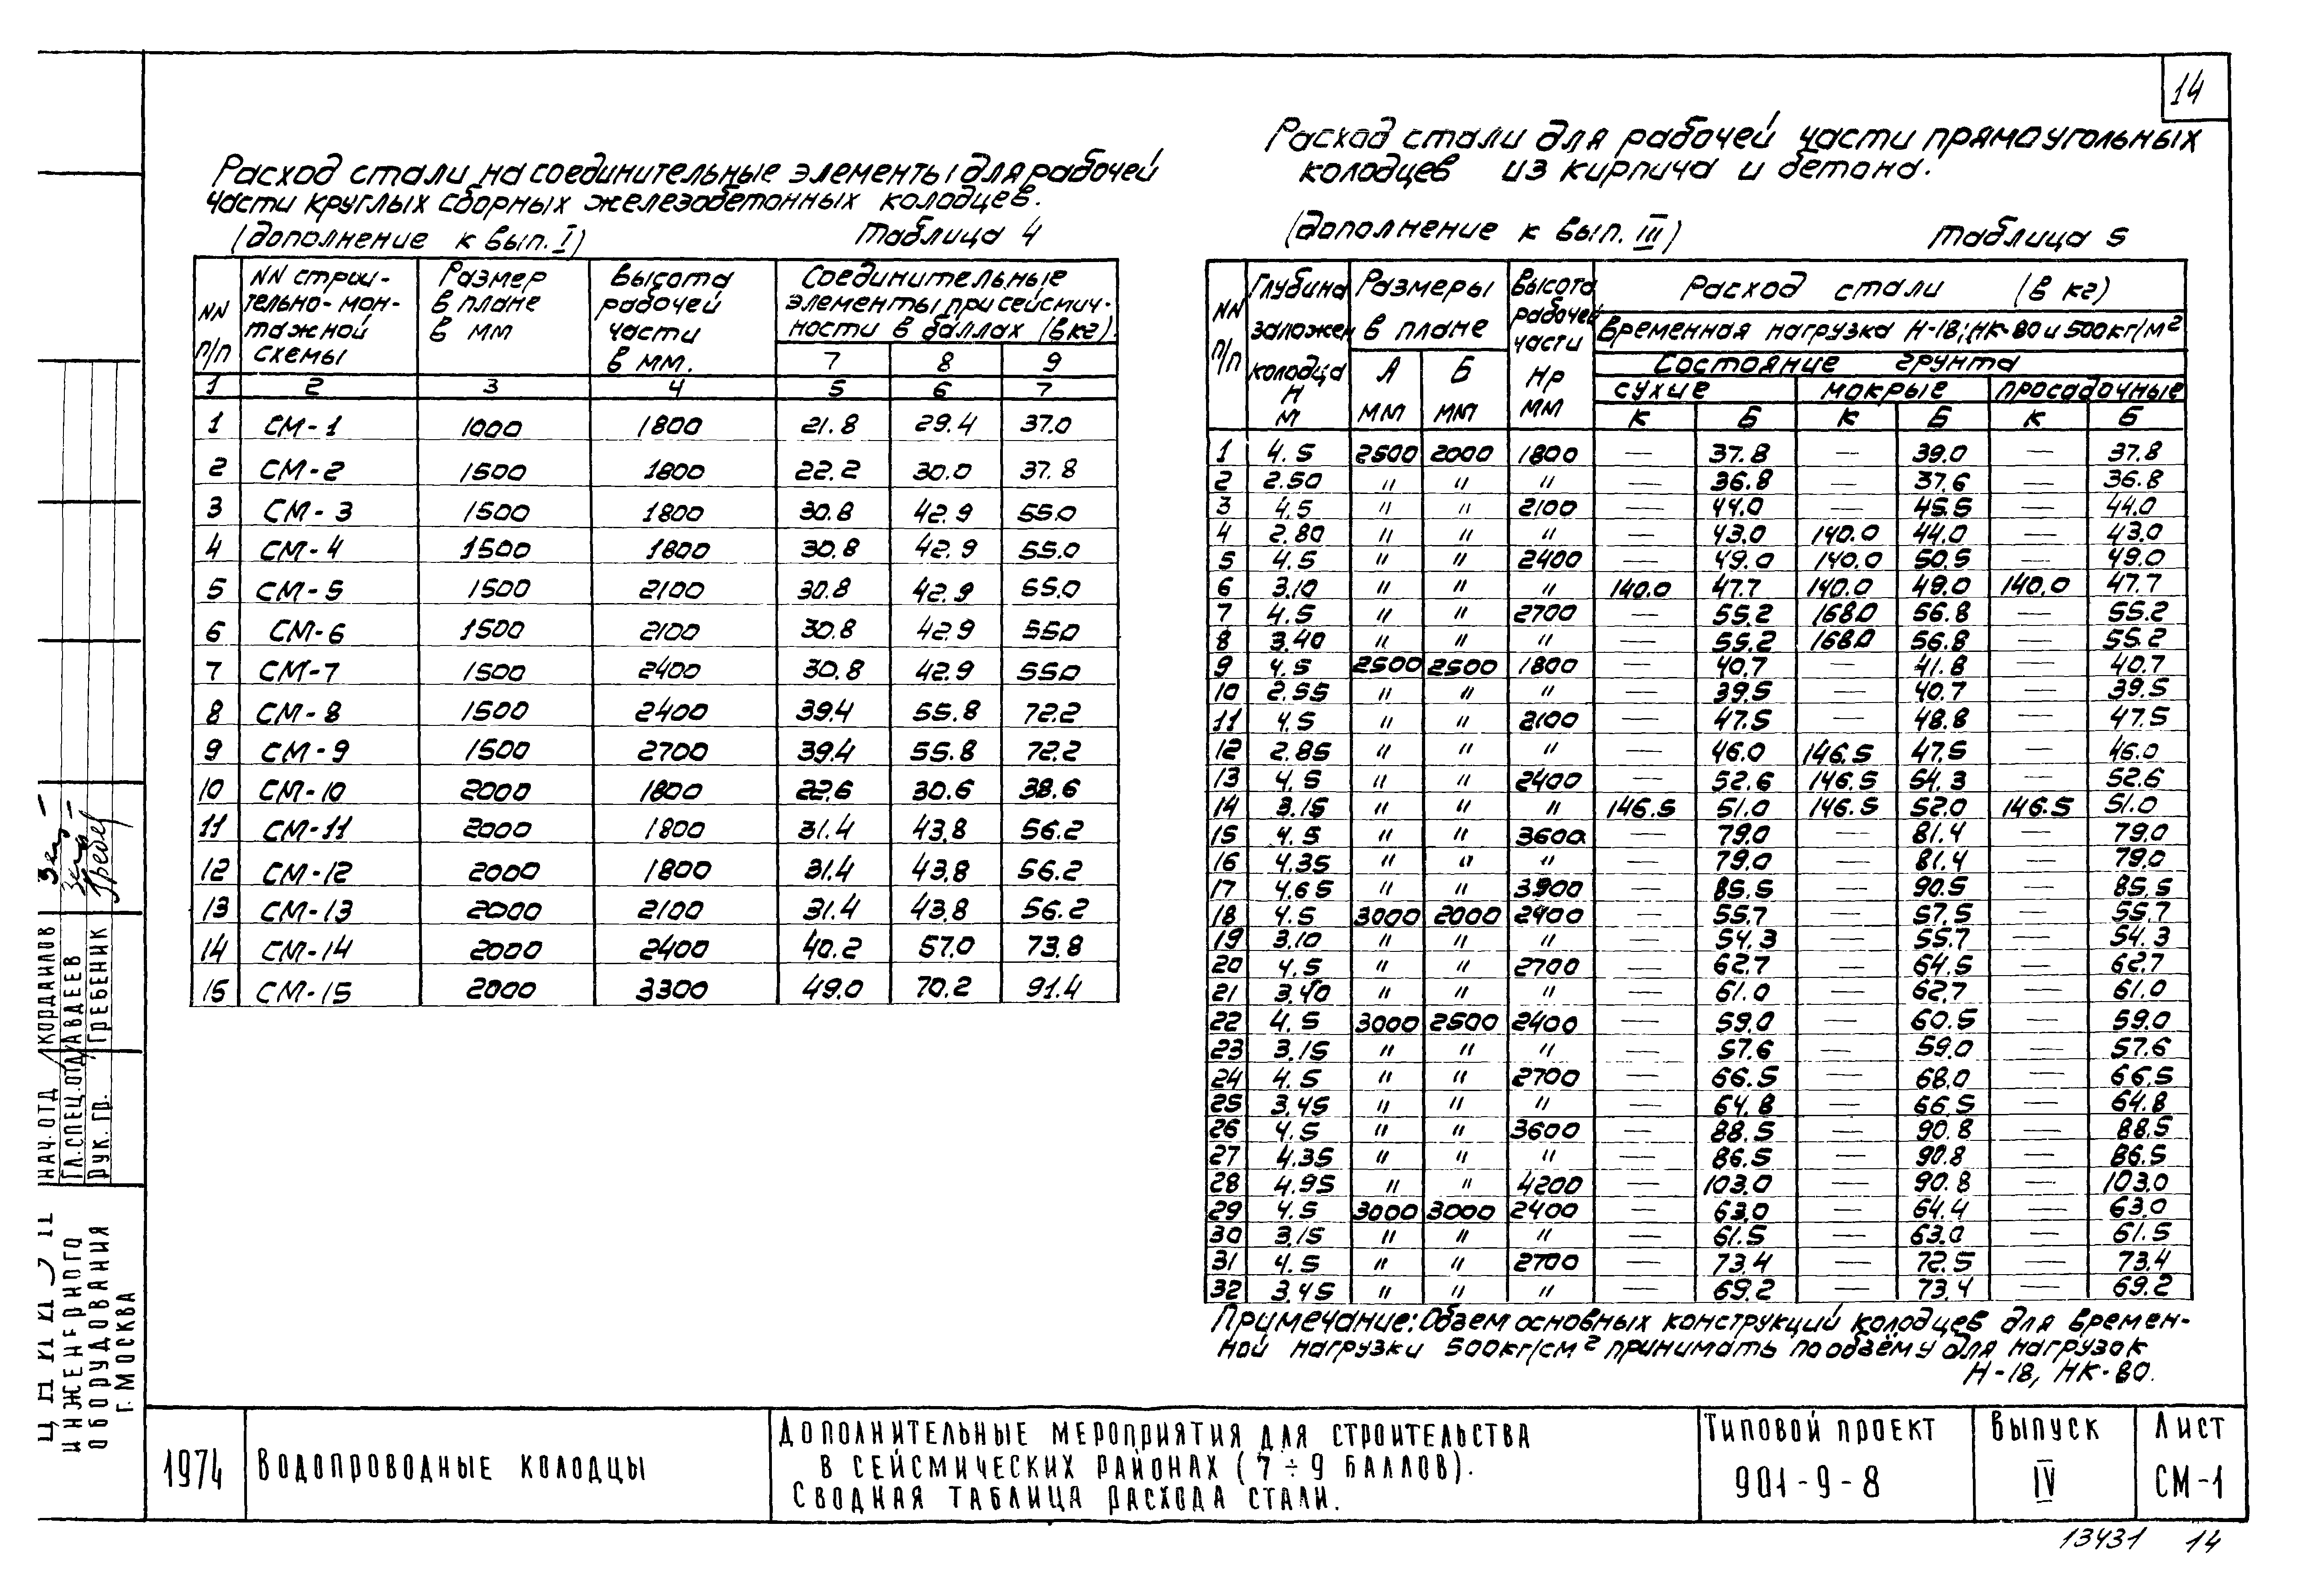 14
Расход стали на соединительные элементы для рабочей
части круглых сборных железобетонных колодцев.
(дополнение к вып. I) таблица 4
NN п/п | NN строительно-монтажной схемы | Размер в плане в мм | Высота рабочей части в мм. | Соединительные элементы при сейсмичности в баллах (в кг).
7 | 8 | 9
1 | 2 | 3 | 4 | 5 | 6 | 7
1 | СМ-1 | 1000 | 1800 | 21.8 | 29.4 | 37.0
2 | СМ-2 | 1500 | 1800 | 22.2 | 30.0 | 37.8
3 | СМ-3 | 1500 | 1800 | 30.8 | 42.9 | 55.0
4 | СМ-4 | 1500 | 1800 | 30.8 | 42.9 | 55.0
5 | СМ-5 | 1500 | 2100 | 30.8 | 42.9 | 55.0
6 | СМ-6 | 1500 | 2100 | 30.8 | 42.9 | 55.0
7 | СМ-7 | 1500 | 2400 | 30.8 | 42.9 | 55.0
8 | СМ-8 | 1500 | 2400 | 39.4 | 55.8 | 72.2
9 | СМ-9 | 1500 | 2700 | 39.4 | 55.8 | 72.2
10 | СМ-10 | 2000 | 1800 | 22.6 | 30.6 | 38.6
11 | СМ-11 | 2000 | 1800 | 31.4 | 43.8 | 56.2
12 | СМ-12 | 2000 | 1800 | 31.4 | 43.8 | 56.2
13 | СМ-13 | 2000 | 2100 | 31.4 | 43.8 | 56.2
14 | СМ-14 | 2000 | 2400 | 40.2 | 57.0 | 73.8
15 | СМ-15 | 2000 | 3300 | 49.0 | 70.2 | 91.4
Расход стали для рабочей части прямоугольных
колодцев из кирпича и бетона.
(дополнение к вып. III) таблица 5
NN п/п | Глубина заложен колодца Н м | Размеры в плане | Высота рабочей части Нр мм | Расход стали (в кг)
Временная нагрузка Н-18; НК-80 и 500кг/м²
Состояние грунта
А мм | Б мм | сухие | мокрые | просадочные
К | Б | К | Б | К | Б
1 | 4.5 | 2500 | 2000 | 1800 | — | 37.8 | — | 39.0 | — | 37.8
2 | 2.50 | " | " | " | — | 36.8 | — | 37.6 | — | 36.8
3 | 4.5 | " | " | 2100 | — | 44.0 | — | 45.5 | — | 44.0
4 | 2.80 | " | " | " | — | 43.0 | 140.0 | 44.0 | — | 43.0
5 | 4.5 | " | " | 2400 | — | 49.0 | 140.0 | 50.5 | — | 49.0
6 | 3.10 | " | " | " | 140.0 | 47.7 | 140.0 | 49.0 | 140.0 | 47.7
7 | 4.5 | " | " | 2700 | — | 55.2 | 168.0 | 56.8 | — | 55.2
8 | 3.40 | " | " | " | — | 55.2 | 168.0 | 56.8 | — | 55.2
9 | 4.5 | 2500 | 2500 | 1800 | — | 40.7 | — | 41.8 | — | 40.7
10 | 2.55 | " | " | " | — | 39.5 | — | 40.7 | — | 39.5
11 | 4.5 | " | " | 2100 | — | 47.5 | — | 48.8 | — | 47.5
12 | 2.85 | " | " | " | — | 46.0 | 146.5 | 47.5 | — | 46.0
13 | 4.5 | " | " | 2400 | — | 52.6 | 146.5 | 54.3 | — | 52.6
14 | 3.15 | " | " | " | 146.5 | 51.0 | 146.5 | 52.0 | 146.5 | 51.0
15 | 4.5 | " | " | 3600 | — | 79.0 | — | 81.4 | — | 79.0
16 | 4.35 | " | " | " | — | 79.0 | — | 81.4 | — | 79.0
17 | 4.65 | " | " | 3900 | — | 85.5 | — | 90.5 | — | 85.5
18 | 4.5 | 3000 | 2000 | 2400 | — | 55.7 | — | 57.5 | — | 55.7
19 | 3.10 | " | " | " | — | 54.3 | — | 55.7 | — | 54.3
20 | 4.5 | " | " | 2700 | — | 62.7 | — | 64.5 | — | 62.7
21 | 3.40 | " | " | " | — | 61.0 | — | 62.7 | — | 61.0
22 | 4.5 | 3000 | 2500 | 2400 | — | 59.0 | — | 60.5 | — | 59.0
23 | 3.15 | " | " | " | — | 57.6 | — | 59.0 | — | 57.6
24 | 4.5 | " | " | 2700 | — | 66.5 | — | 68.0 | — | 66.5
25 | 3.45 | " | " | " | — | 64.8 | — | 66.5 | — | 64.8
26 | 4.5 | " | " | 3600 | — | 88.5 | — | 90.8 | — | 88.5
27 | 4.35 | " | " | " | — | 86.5 | — | 90.8 | — | 86.5
28 | 4.95 | " | " | 4200 | — | 103.0 | — | 90.8 | — | 103.0
29 | 4.5 | 3000 | 3000 | 2400 | — | 63.0 | — | 64.4 | — | 63.0
30 | 3.15 | " | " | " | — | 61.5 | — | 63.0 | — | 61.5
31 | 4.5 | " | " | 2700 | — | 73.4 | — | 72.5 | — | 73.4
32 | 3.45 | " | " | " | — | 69.2 | — | 73.4 | — | 69.2
Примечание: Объем основных конструкций колодцев для времен-
ной нагрузки 500кг/см² принимать по объёму для нагрузок
Н-18, НК-80.
НАЧ. ОТД КОРДАИЛОВ
ГЛ.СПЕЦ.ОТД АВДЕЕВ
РУК. ГР. ГРЕБЕНИК
ИНЖЕНЕРНОГО
ОБОРУДОВАНИЯ
Г. МОСКВА
1974
ВОДОПРОВОДНЫЕ КОЛОДЦЫ
ДОПОЛНИТЕЛЬНЫЕ МЕРОПРИЯТИЯ ДЛЯ СТРОИТЕЛЬСТВА
В СЕЙСМИЧЕСКИХ РАЙОНАХ (7÷9 БАЛЛОВ).
СВОДНАЯ ТАБЛИЦА РАСХОДА СТАЛИ.
ТИПОВОЙ ПРОЕКТ
901-9-8
ВЫПУСК
IV
ЛИСТ
СМ-1
13431 14